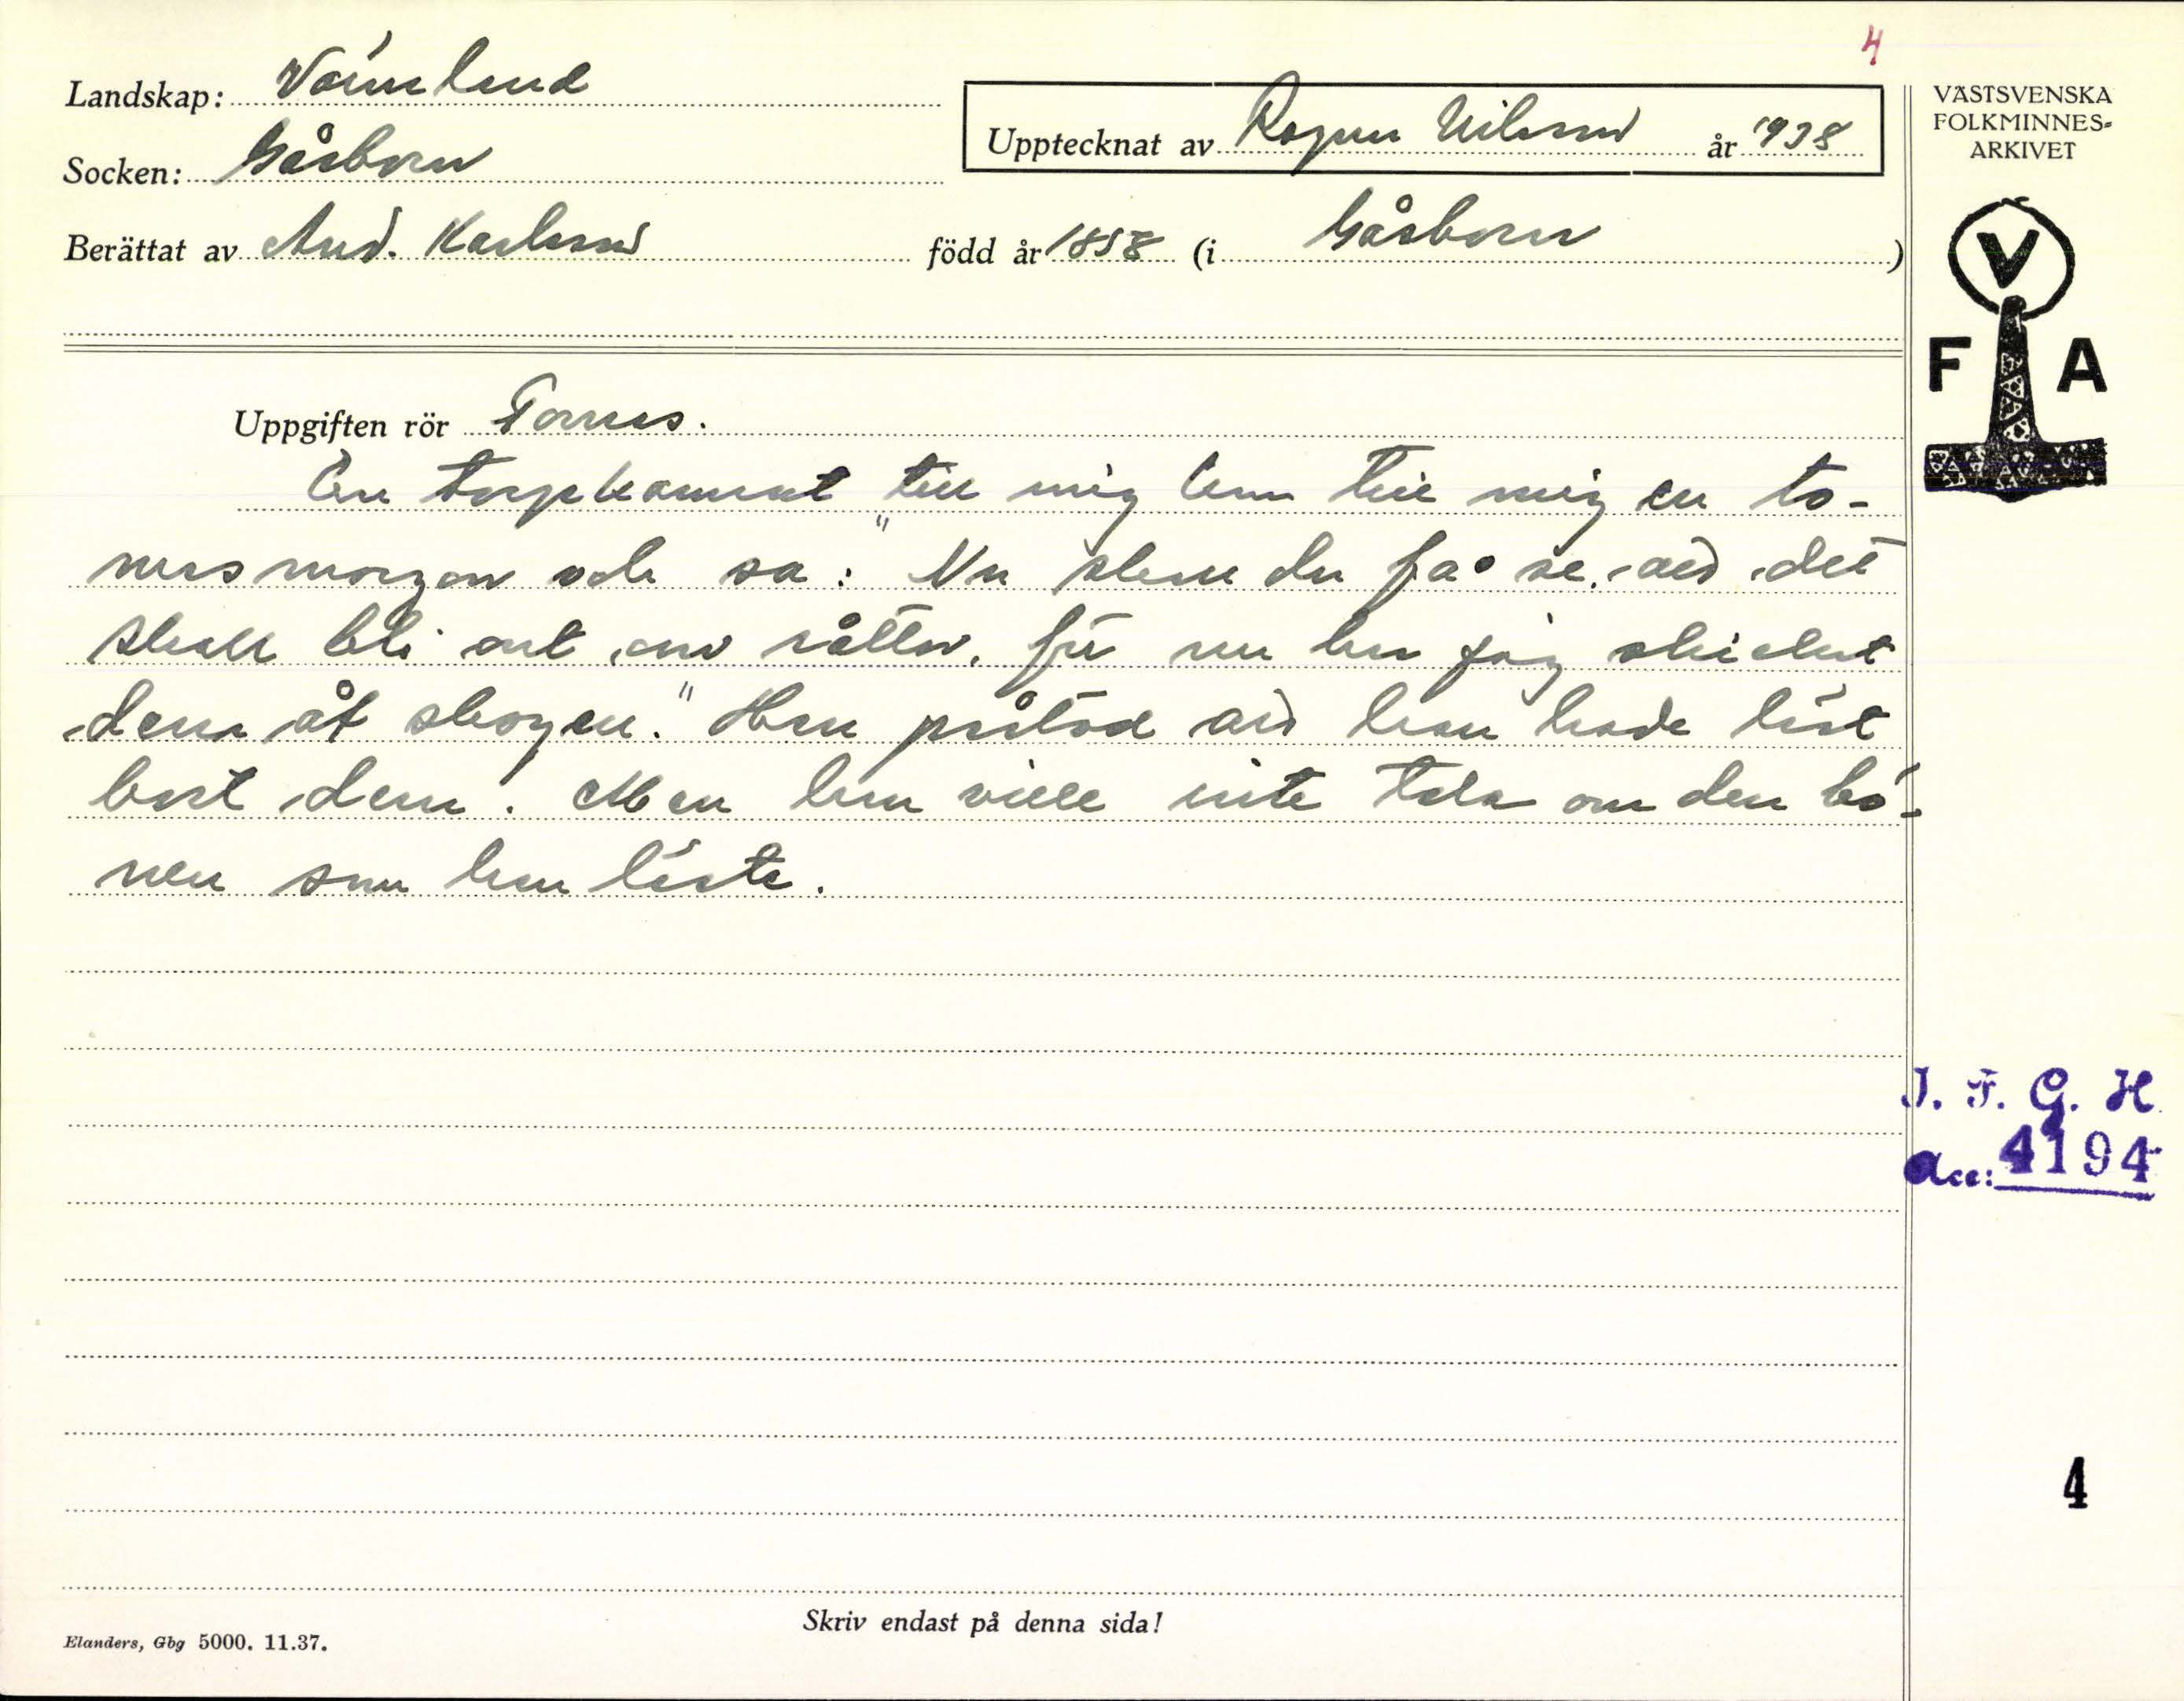 4
Landskap: Värmland
Socken: Gåsborn
Upptecknat av Ragnar Nilsson år 1938
Berättat av And. Karlsson född år 1858 (i Gåsborn)
VÄSTSVENSKA
FOLKMINNES-
ARKIVET
V
F A
Uppgiften rör Tomas.
En till mig kom till mig en to-
masmorgon och sa: "Nu skall du få se, att det
skall bli ont om råttor, för nu har jag skickat
dem åt skogen." Han påstod att han hade läst
bort dem. Men han ville inte tala om den bö-
nen som han läste.
I. F. G. H.
Acc: 4194
4
Skriv endast på denna sida!
Elanders, Gbg 5000. 11.37.